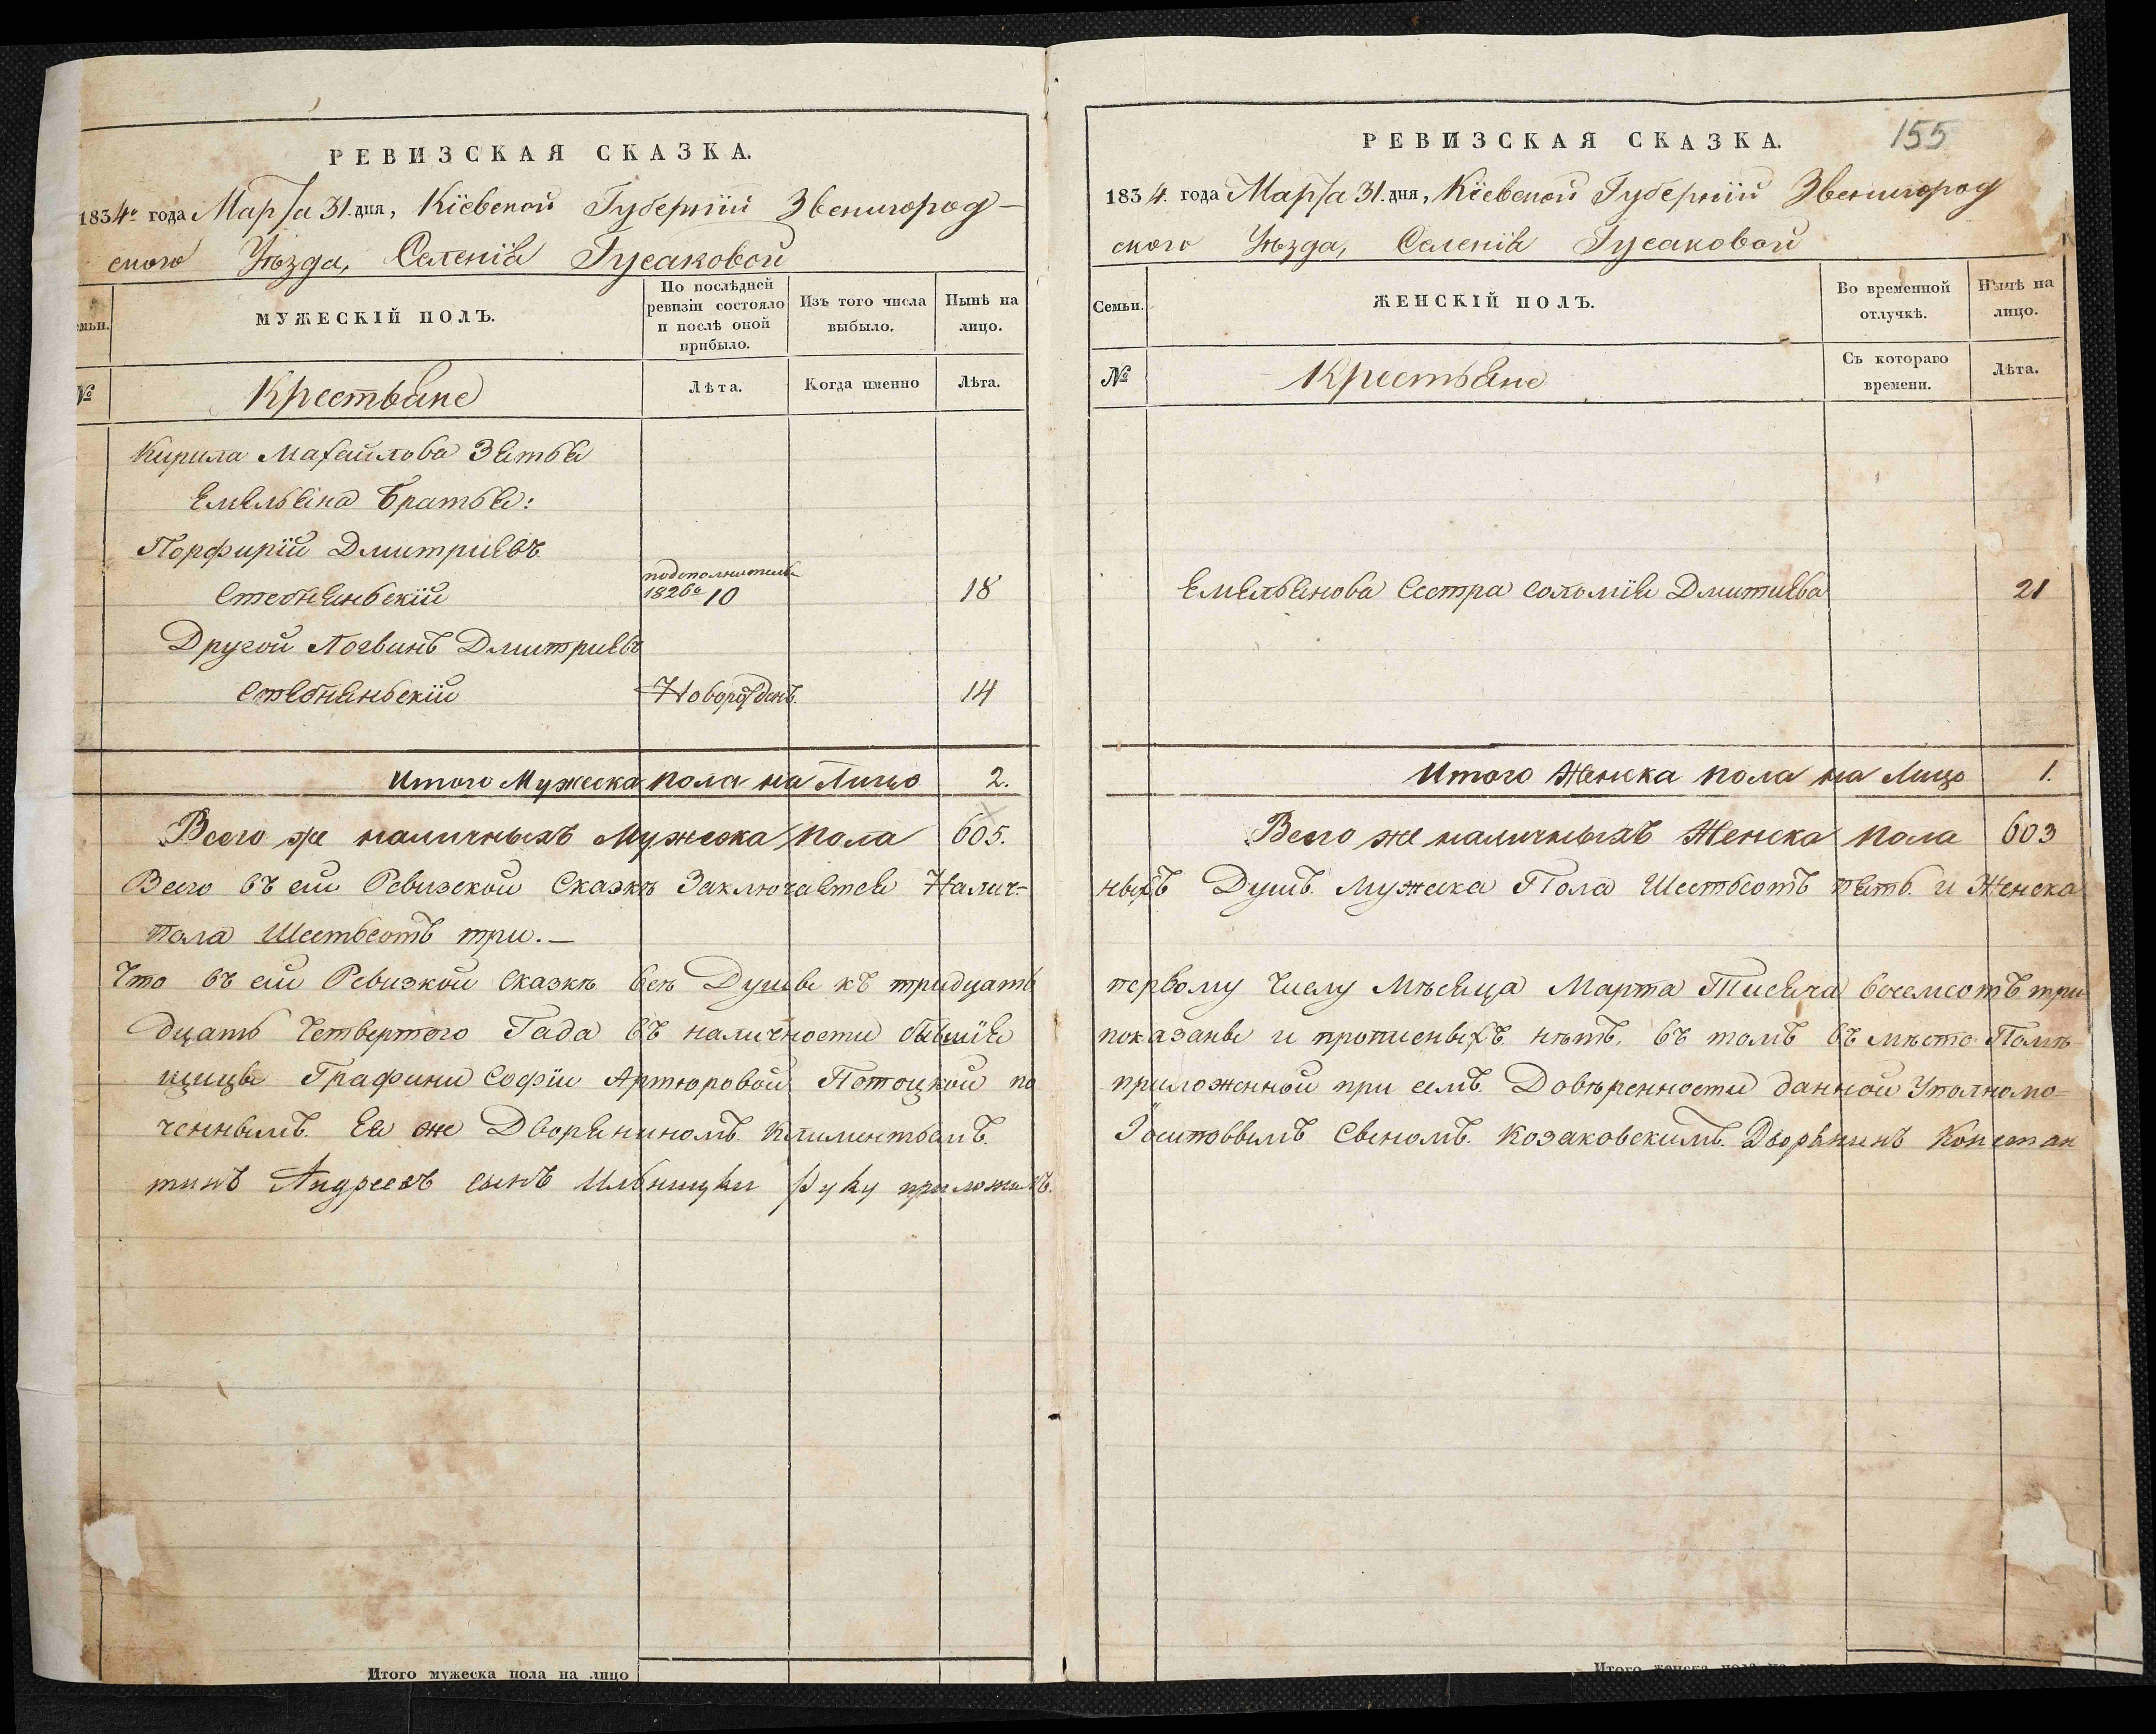 РЕВИЗСКАЯ СКАЗКА.
1834го года Марта 31. дня, Кіевской Губерніи Звенигород-
ского Уѣзда, Селенія Гусаковой
МУЖЕСКІЙ ПОЛЪ.
По послѣдней ревизіи состояло и послѣ оной прибыло.
Изъ того числа выбыло.
Нынѣ на лицо.
№
Крестьяне
Лѣта.
Когда именно
Лѣта.
Кирила Махайлова Зятья
Емельяна Братья:
Порфирій Дмитріевъ
Стебнянскій 1826го 10 18
Другой Логвинъ Дмитріевъ
Стебнянскій Новорожденъ. 14
Итого Мужеска пола на Лицо 2.
Всего же наличныхъ Мужеска пола 605.
Всего въ сей Ревизской Сказкѣ Заключается Налич-
Пола Шестьсотъ три.—
Что въ сей Ревизкой Сказкѣ всѣ Душы къ тридцать
дцать Четвертого Года въ наличности бывшія
щицы Графини Софіи Артюровой Потоцкой по
ченнымъ Ея же Дворяниномъ Климентьемъ.
тинъ Андреевъ сынъ руку приложилъ.
Итого мужеска пола на лицо
РЕВИЗСКАЯ СКАЗКА.
155
1834. года Марта 31. дня, Кіевской Губерніи Звенигород
ского Уѣзда, Селенія Гусаковой
Семьи.
ЖЕНСКІЙ ПОЛЪ.
Во временной отлучкѣ.
Нынѣ на лицо.
№
Крестьяне
Съ котораго времени.
Лѣта.
Емельянова Сестра Соломія Дмитиева 21
Итого Женска пола на Лицо 1.
Всего же наличныхъ Женска пола 603
ныхъ Душъ Мужеска Пола Шестьсотъ пять. и Женска
первому Числу Мѣсяца Марта Тисяча восемсотъ три
показаны и прописныхъ нѣтъ, въ томъ въ мѣсто Помѣ
приложенной при семъ Довѣренности данной Уполномо=
Козаковскимъ. Дворянинъ Констан